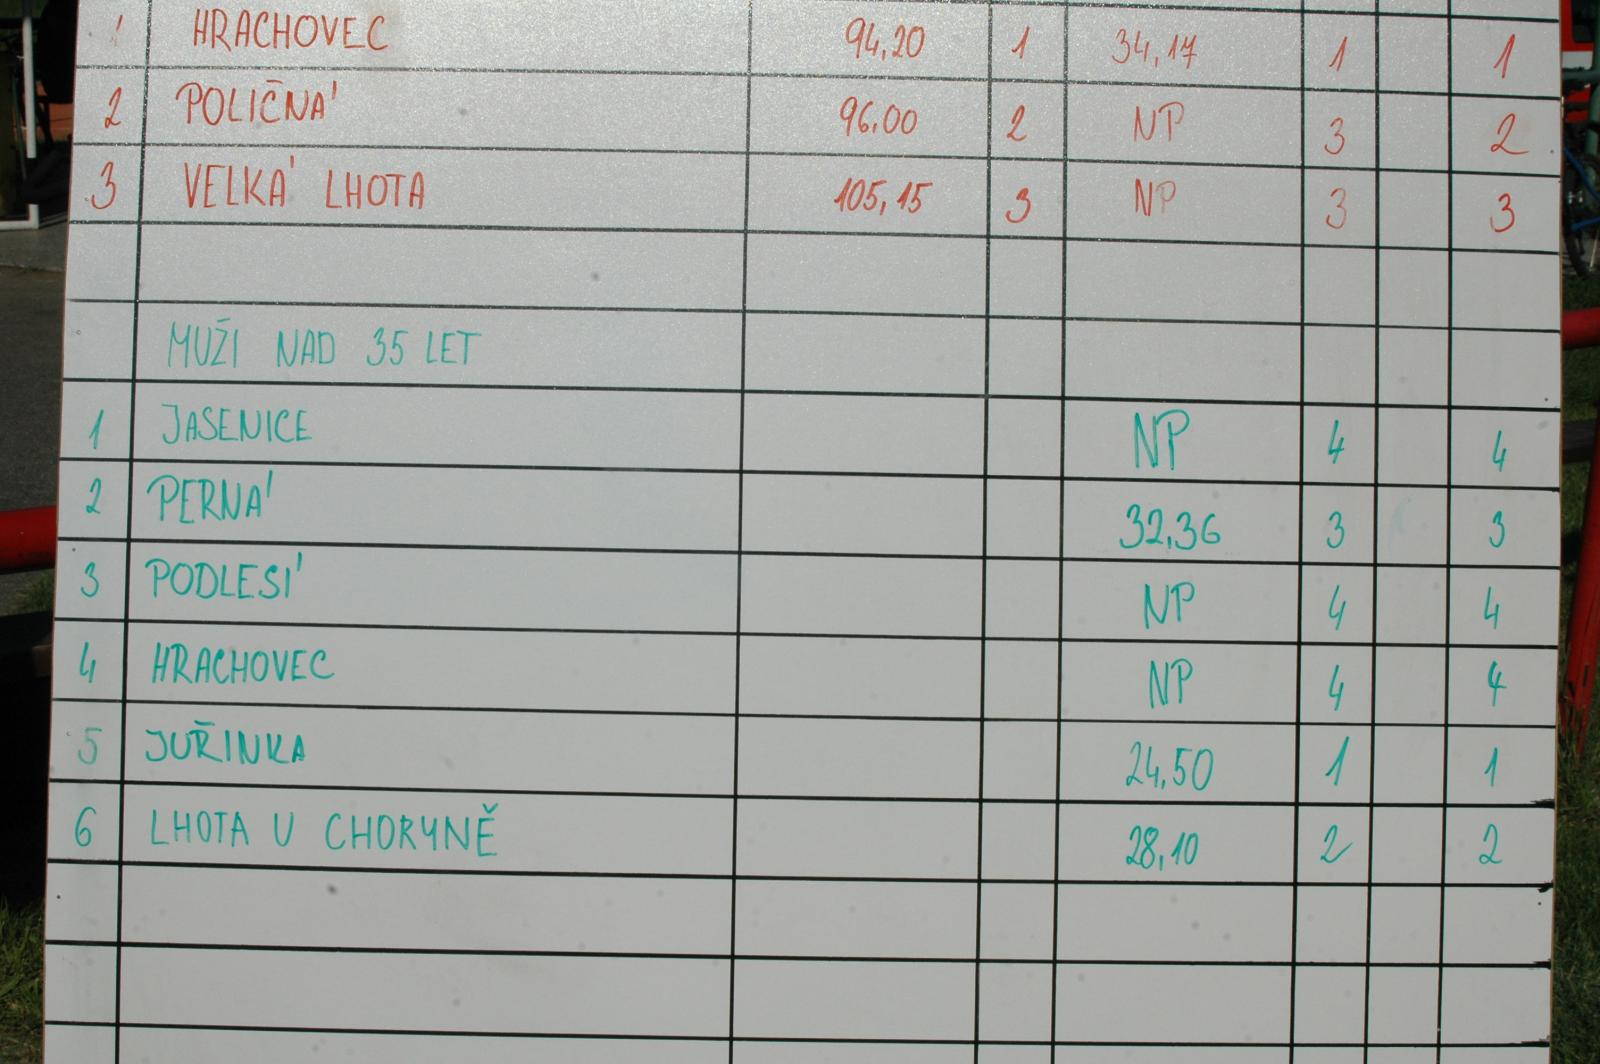 1 HRACHOVEC 94,20 1 34,17 1 1
2 POLIČNÁ 96,00 2 NP 3 2
3 VELKÁ LHOTA 105,15 3 NP 3 3
MUŽI NAD 35 LET
1 JASENICE NP 4 4
2 PERNÁ 32,36 3 3
3 PODLESÍ NP 4 4
4 HRACHOVEC NP 4 4
5 JUŘINKA 24,50 1 1
6 LHOTA U CHORYNĚ 28,10 2 2